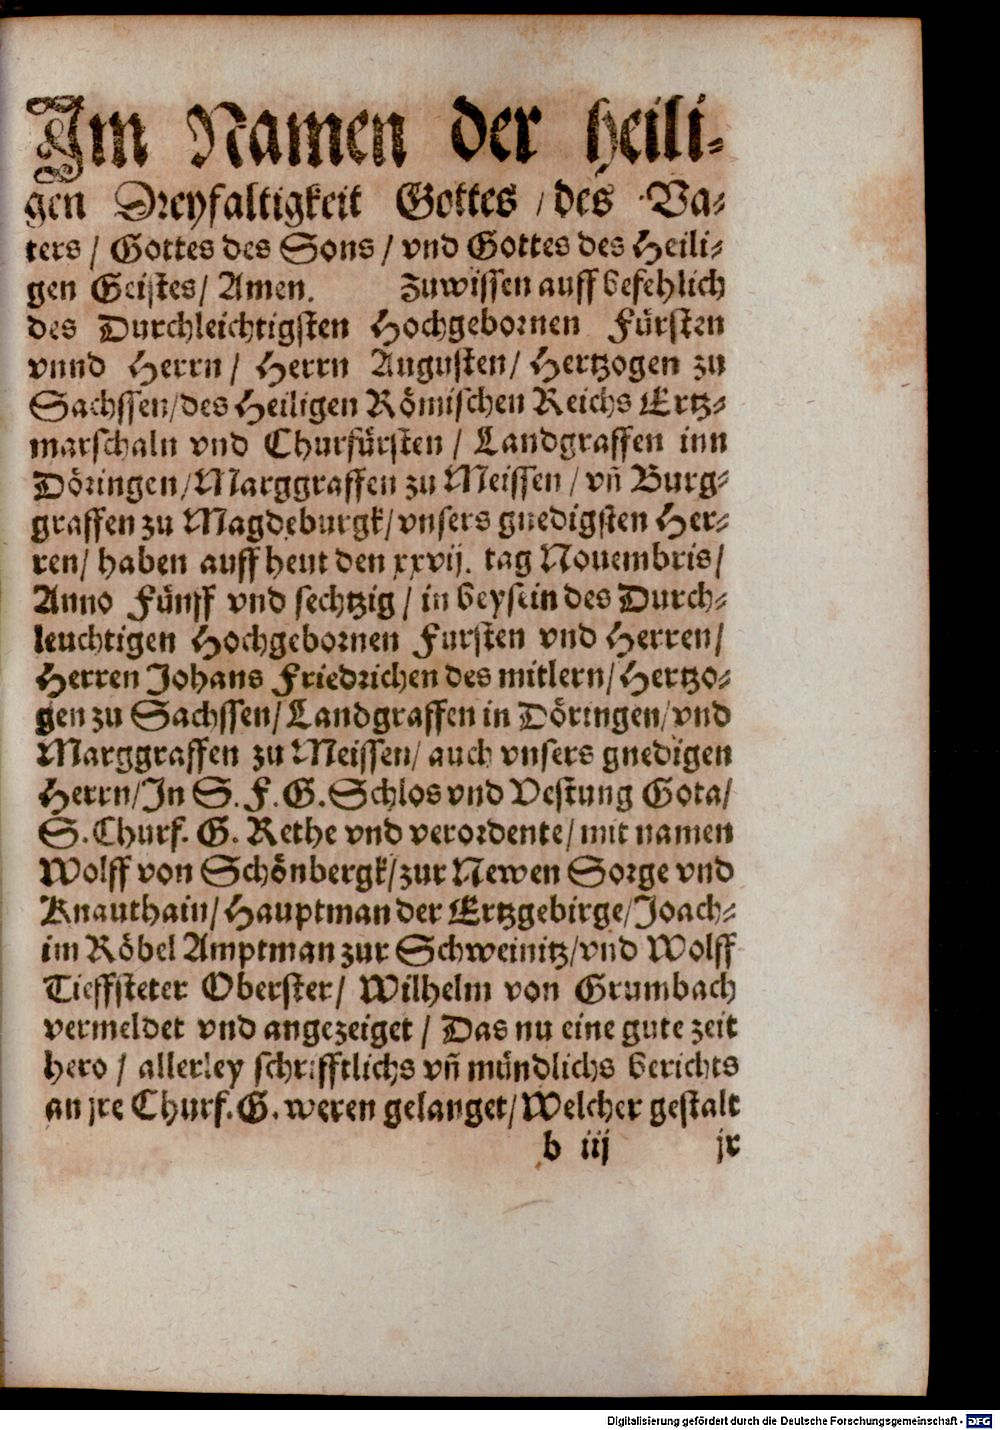 Im Namen der heili-
gen Dreyfaltigkeit Gottes / des Va-
ters / Gottes des Sons / vnd Gottes des Heili-
gen Geistes / Amen. Zuwissen auff befehlich
des Durchleichtigsten Hochgebornen Fürsten
vnnd Herrn / Herrn Augusten / Hertzogen zu
Sachssen / des Heiligen Römischen Reichs Ertz-
marschaln vnd Churfürsten / Landgraffen inn
Döringen / Marggraffen zu Meissen / vñ Burg-
graffen zu Magdeburgk / vnsers gnedigsten Her-
ren / haben auff heut den xxvij. tag Nouembris /
Anno Fünff vnd sechtzig / in beysein des Durch-
leuchtigen Hochgebornen Fursten vnd Herren /
Herren Johans Friedrichen des mitlern / Hertzo-
gen zu Sachssen / Landgraffen in Döringen / vnd
Marggraffen zu Meissen / auch vnsers gnedigen
Herrn / In S. F. G. Schlos vnd Vestung Gota /
S. Churf. G. Rethe vnd verordente / mit namen
Wolff von Schönbergk / zur Newen Sorge vnd
Knauthain / Hauptman der Ertzgebirge / Joach-
im Röbel Amptman zur Schweinitz / vnd Wolff
Tieffsteter Oberster / Wilhelm von Grumbach
vermeldet vnd angezeiget / Das nu eine gute zeit
hero / allerley schrifftlichs vñ mündlichs berichts
an jre Churf. G. weren gelanget / Welcher gestalt
b iij jr
Digitalisierung gefördert durch die Deutsche Forschungsgemeinschaft - DFG